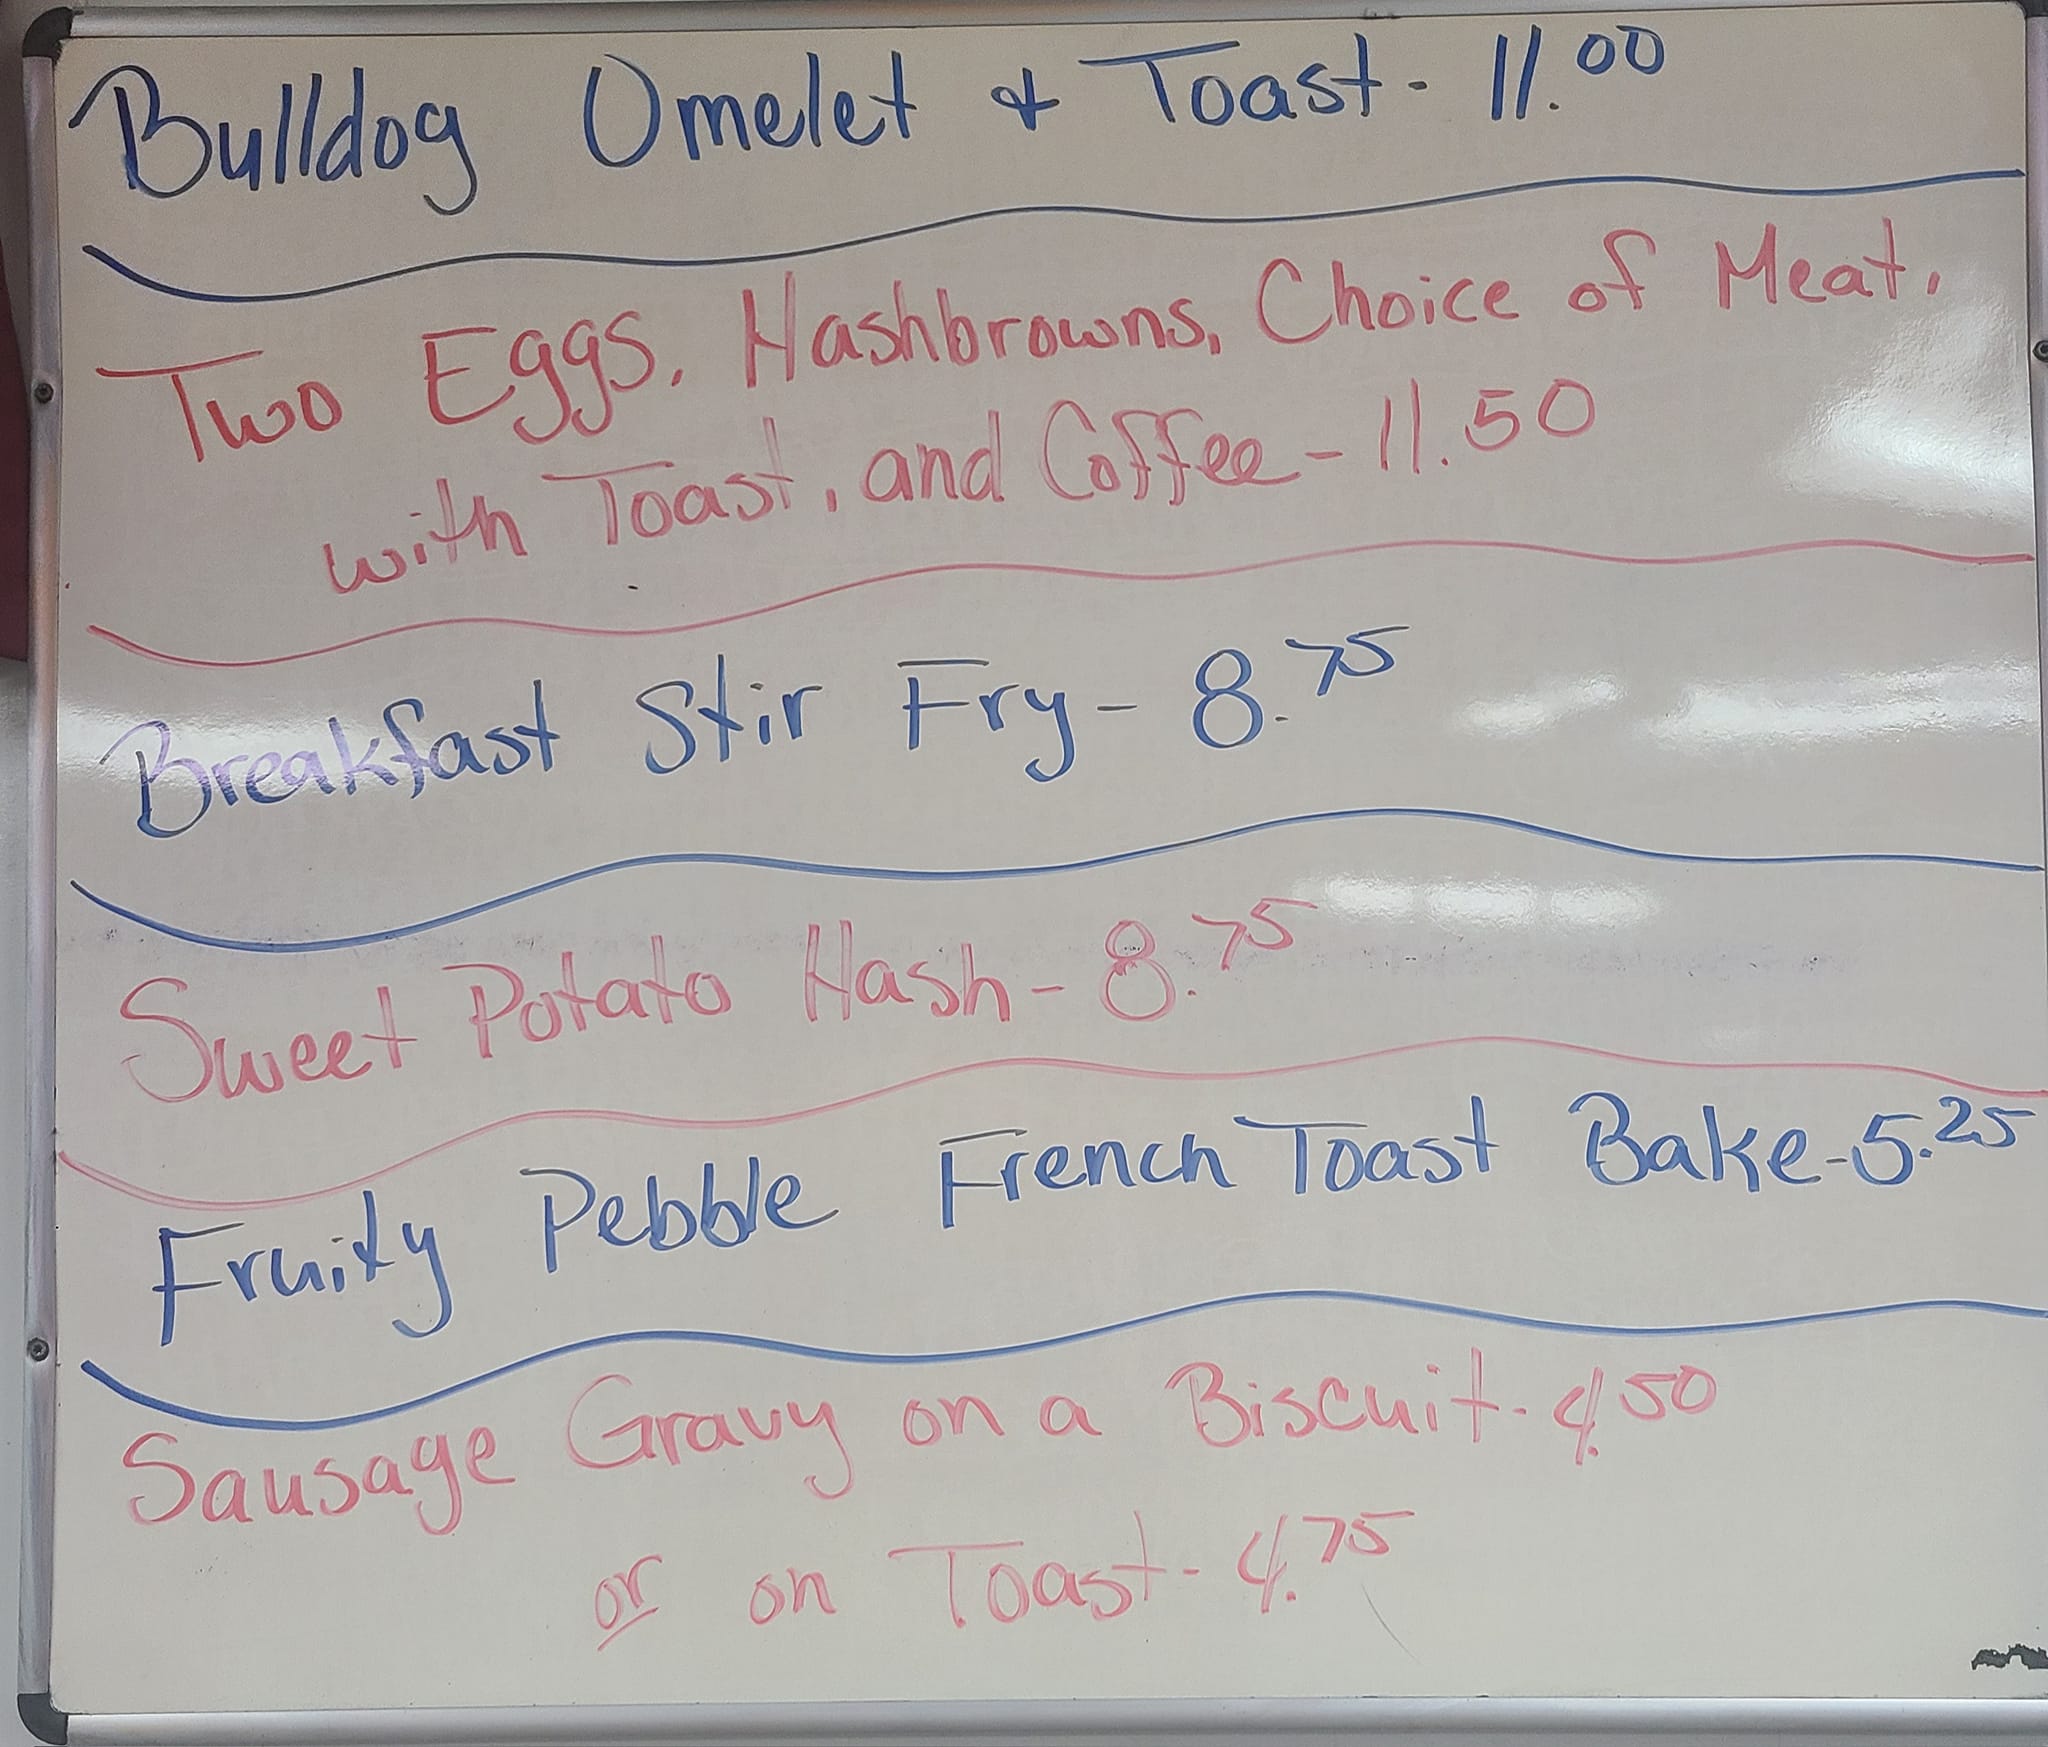 Bulldog Omelet & Toast - 11.00
Two Eggs, Hashbrowns, Choice of Meat,
with Toast, and Coffee - 11.50
Breakfast Stir Fry - 8.75
Sweet Potato Hash - 8.75
Fruity Pebble French Toast Bake - 5.25
Sausage Gravy on a Biscuit - 4.50
or on Toast - 4.75